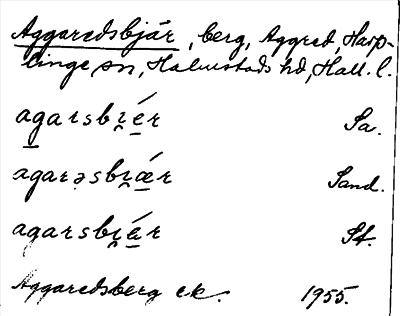 Aggaredsbjär, berg, Aggred, Harp-
linge sn, Halmstads hd, Hall. l.
agarsbi̯ér Sa.
agarəsbi̯ǽr Sand.
agarsbi̯ä́r St.
Aggaredsberg ek. 1955.